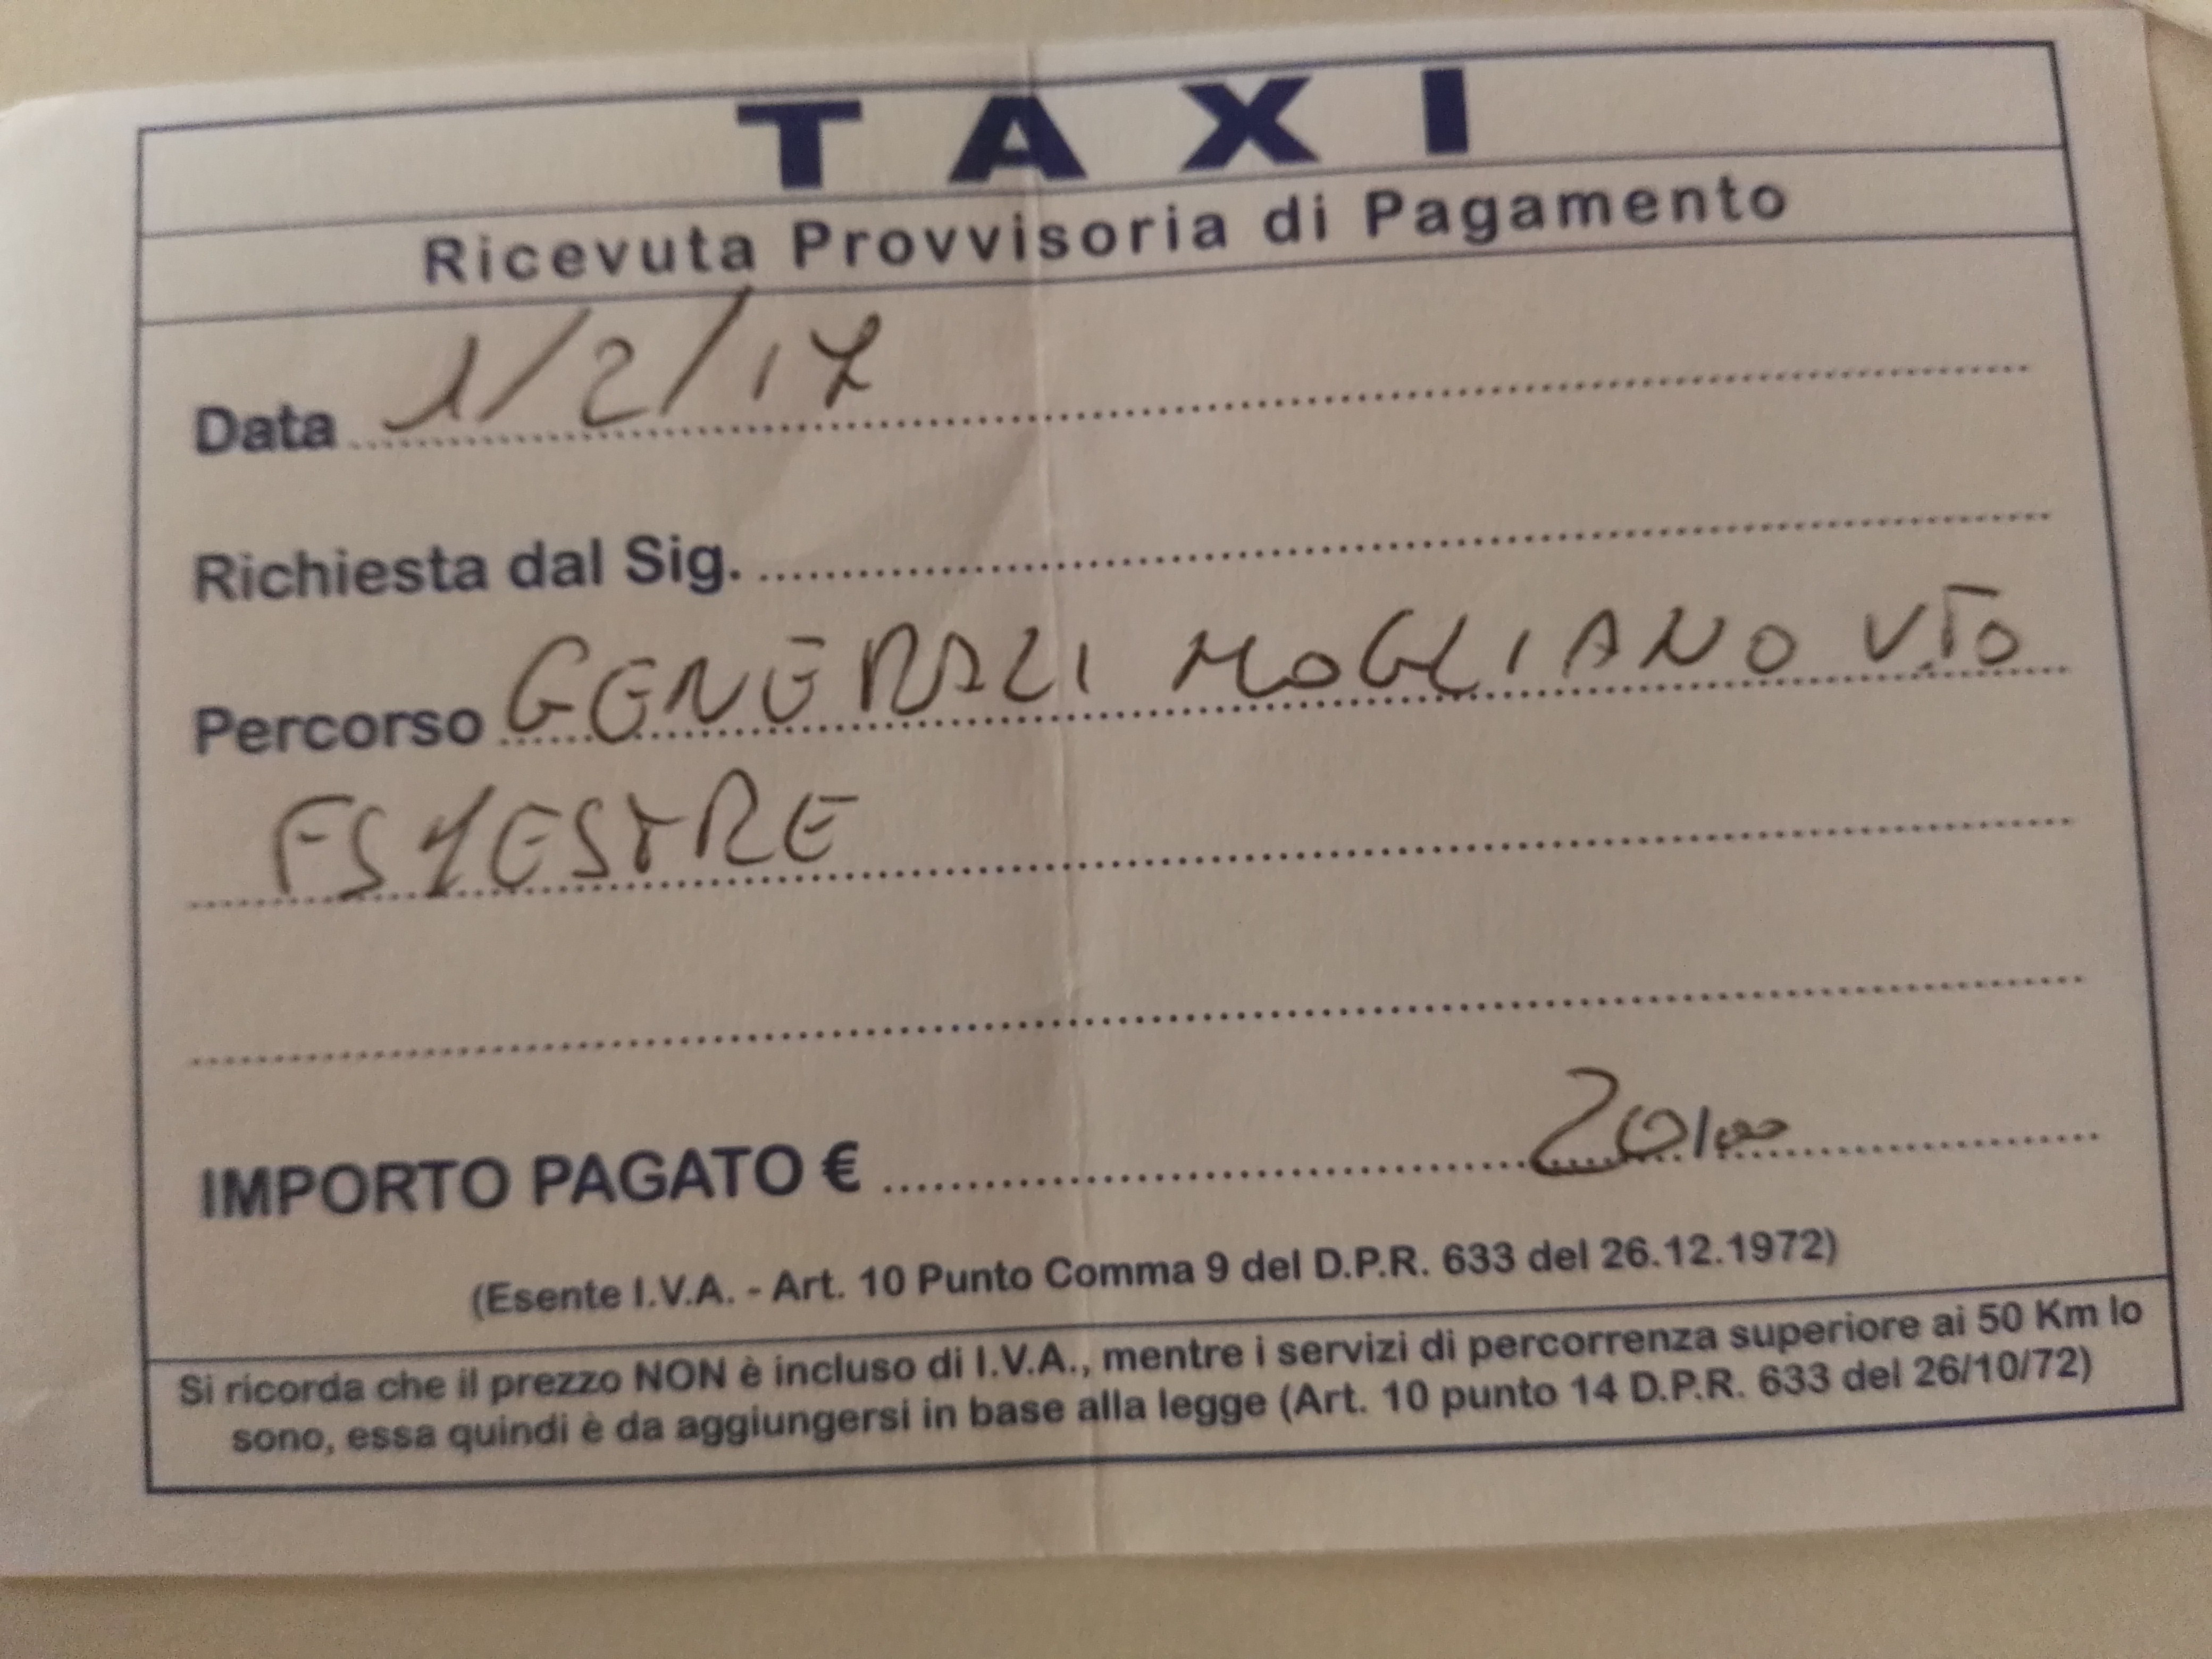 TAXI
Ricevuta Provvisoria di Pagamento
Data 1/2/17
Richiesta dal Sig.
Percorso GENERALI MOGLIANO V.TO
FS MESTRE
IMPORTO PAGATO € 20,00
(Esente I.V.A. - Art. 10 Punto Comma 9 del D.P.R. 633 del 26.12.1972)
Si ricorda che il prezzo NON è incluso di I.V.A., mentre i servizi di percorrenza superiore ai 50 Km lo
sono, essa quindi è da aggiungersi in base alla legge (Art. 10 punto 14 D.P.R. 633 del 26/10/72)